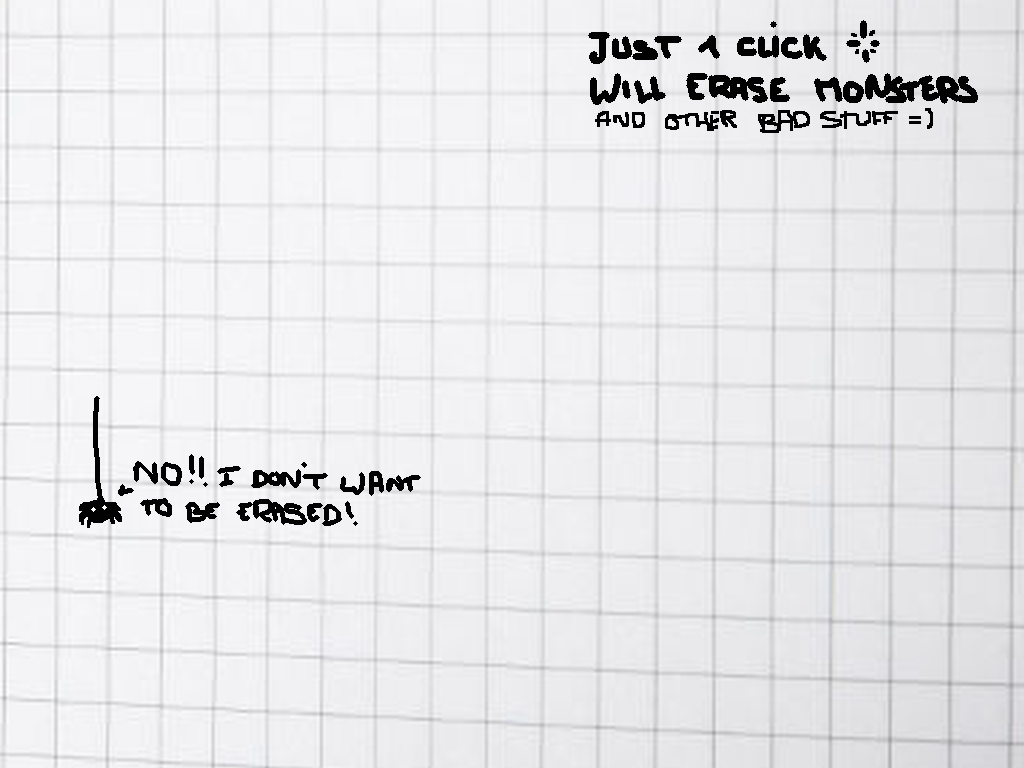 JUST 1 CLICK
WILL ERASE MONSTERS
AND OTHER BAD STUFF =)
NO!! I DON'T WANT
TO BE ERASED!